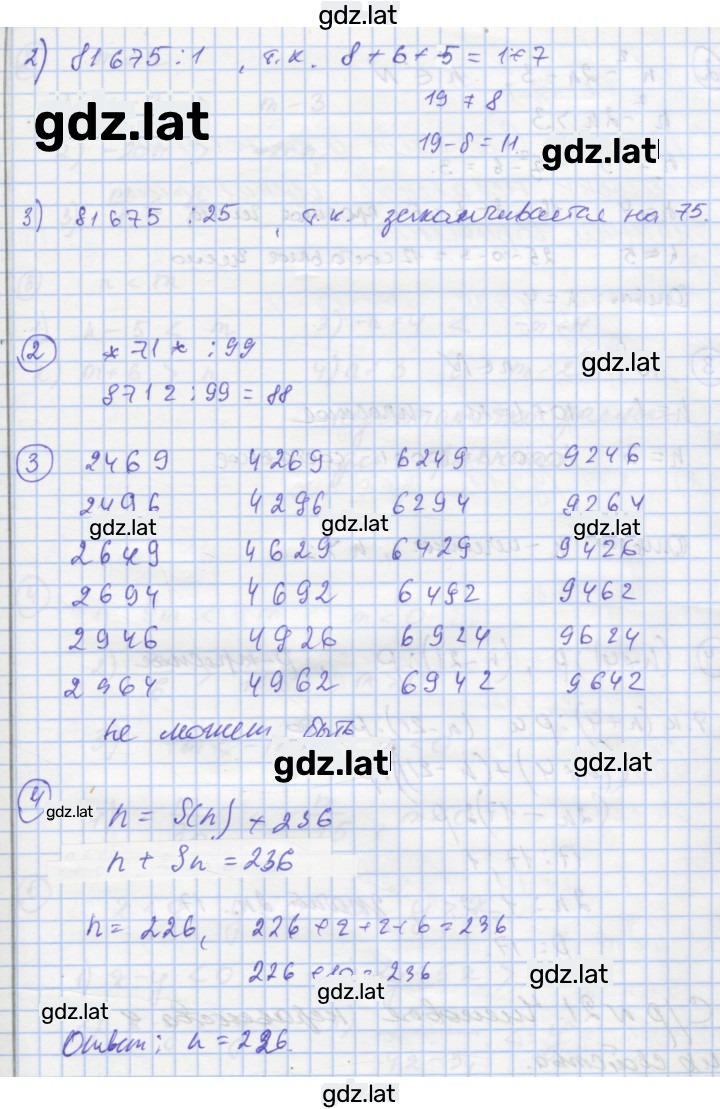 gdz.lat
2) 81675 : 1 , т.к. 8 + 6 + 5 = 1 + 7
gdz.lat
19 ≠ 8
19 - 8 = 11.
gdz.lat
3) 81675 : 25 , т.к. заканчивается на 75.
2 *71* : 99
gdz.lat
8712 : 99 = 88
3 2469 4269 6249 9246
2496 4296 6294 9264
gdz.lat gdz.lat gdz.lat
2649 4629 6429 9426
2694 4692 6492 9462
2946 4926 6924 9624
2964 4962 6942 9642
не может быть
gdz.lat gdz.lat
4 gdz.lat n = S(n) + 236
n + Sn = 236
n = 226, 226 + 2 + 2 + 6 = 236
226 + 10 = 236
gdz.lat
gdz.lat
gdz.lat
Ответ: n = 226.
gdz.lat